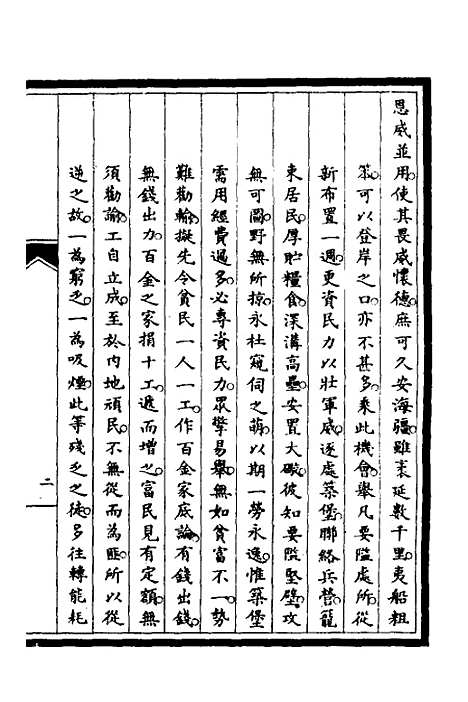 恩威並用。使其畏威懷德。庶可久安海疆。雖袤延數千里。夷船粗
笨。可以登岸之口。亦不甚多。乘此機會。舉凡要隘處所。從
新布置一週。更資民力以壯軍威。逐處築堡。聯絡兵營。籠
東居民。厚貯糧食。深溝高壘。安置大礮。彼知要隘堅壁。攻
無可圖。野無所掠。永杜窺伺之萌。以期一勞永逸。惟築堡
需用經費過多。必專資民力。眾擎易舉。無如貧富不一。勢
難勸輸。擬先令貧民一人一工。作百金家底論。有錢出錢。
無錢出力。百金之家捐十工。遞而增之。富民見有定額。無
須勸諭。工自立成。至於內地頑民。不無從而為匪。所以從
逆之故。一為窮乏。一為吸煙。此等殘乏之徒。多往轉能耗
二